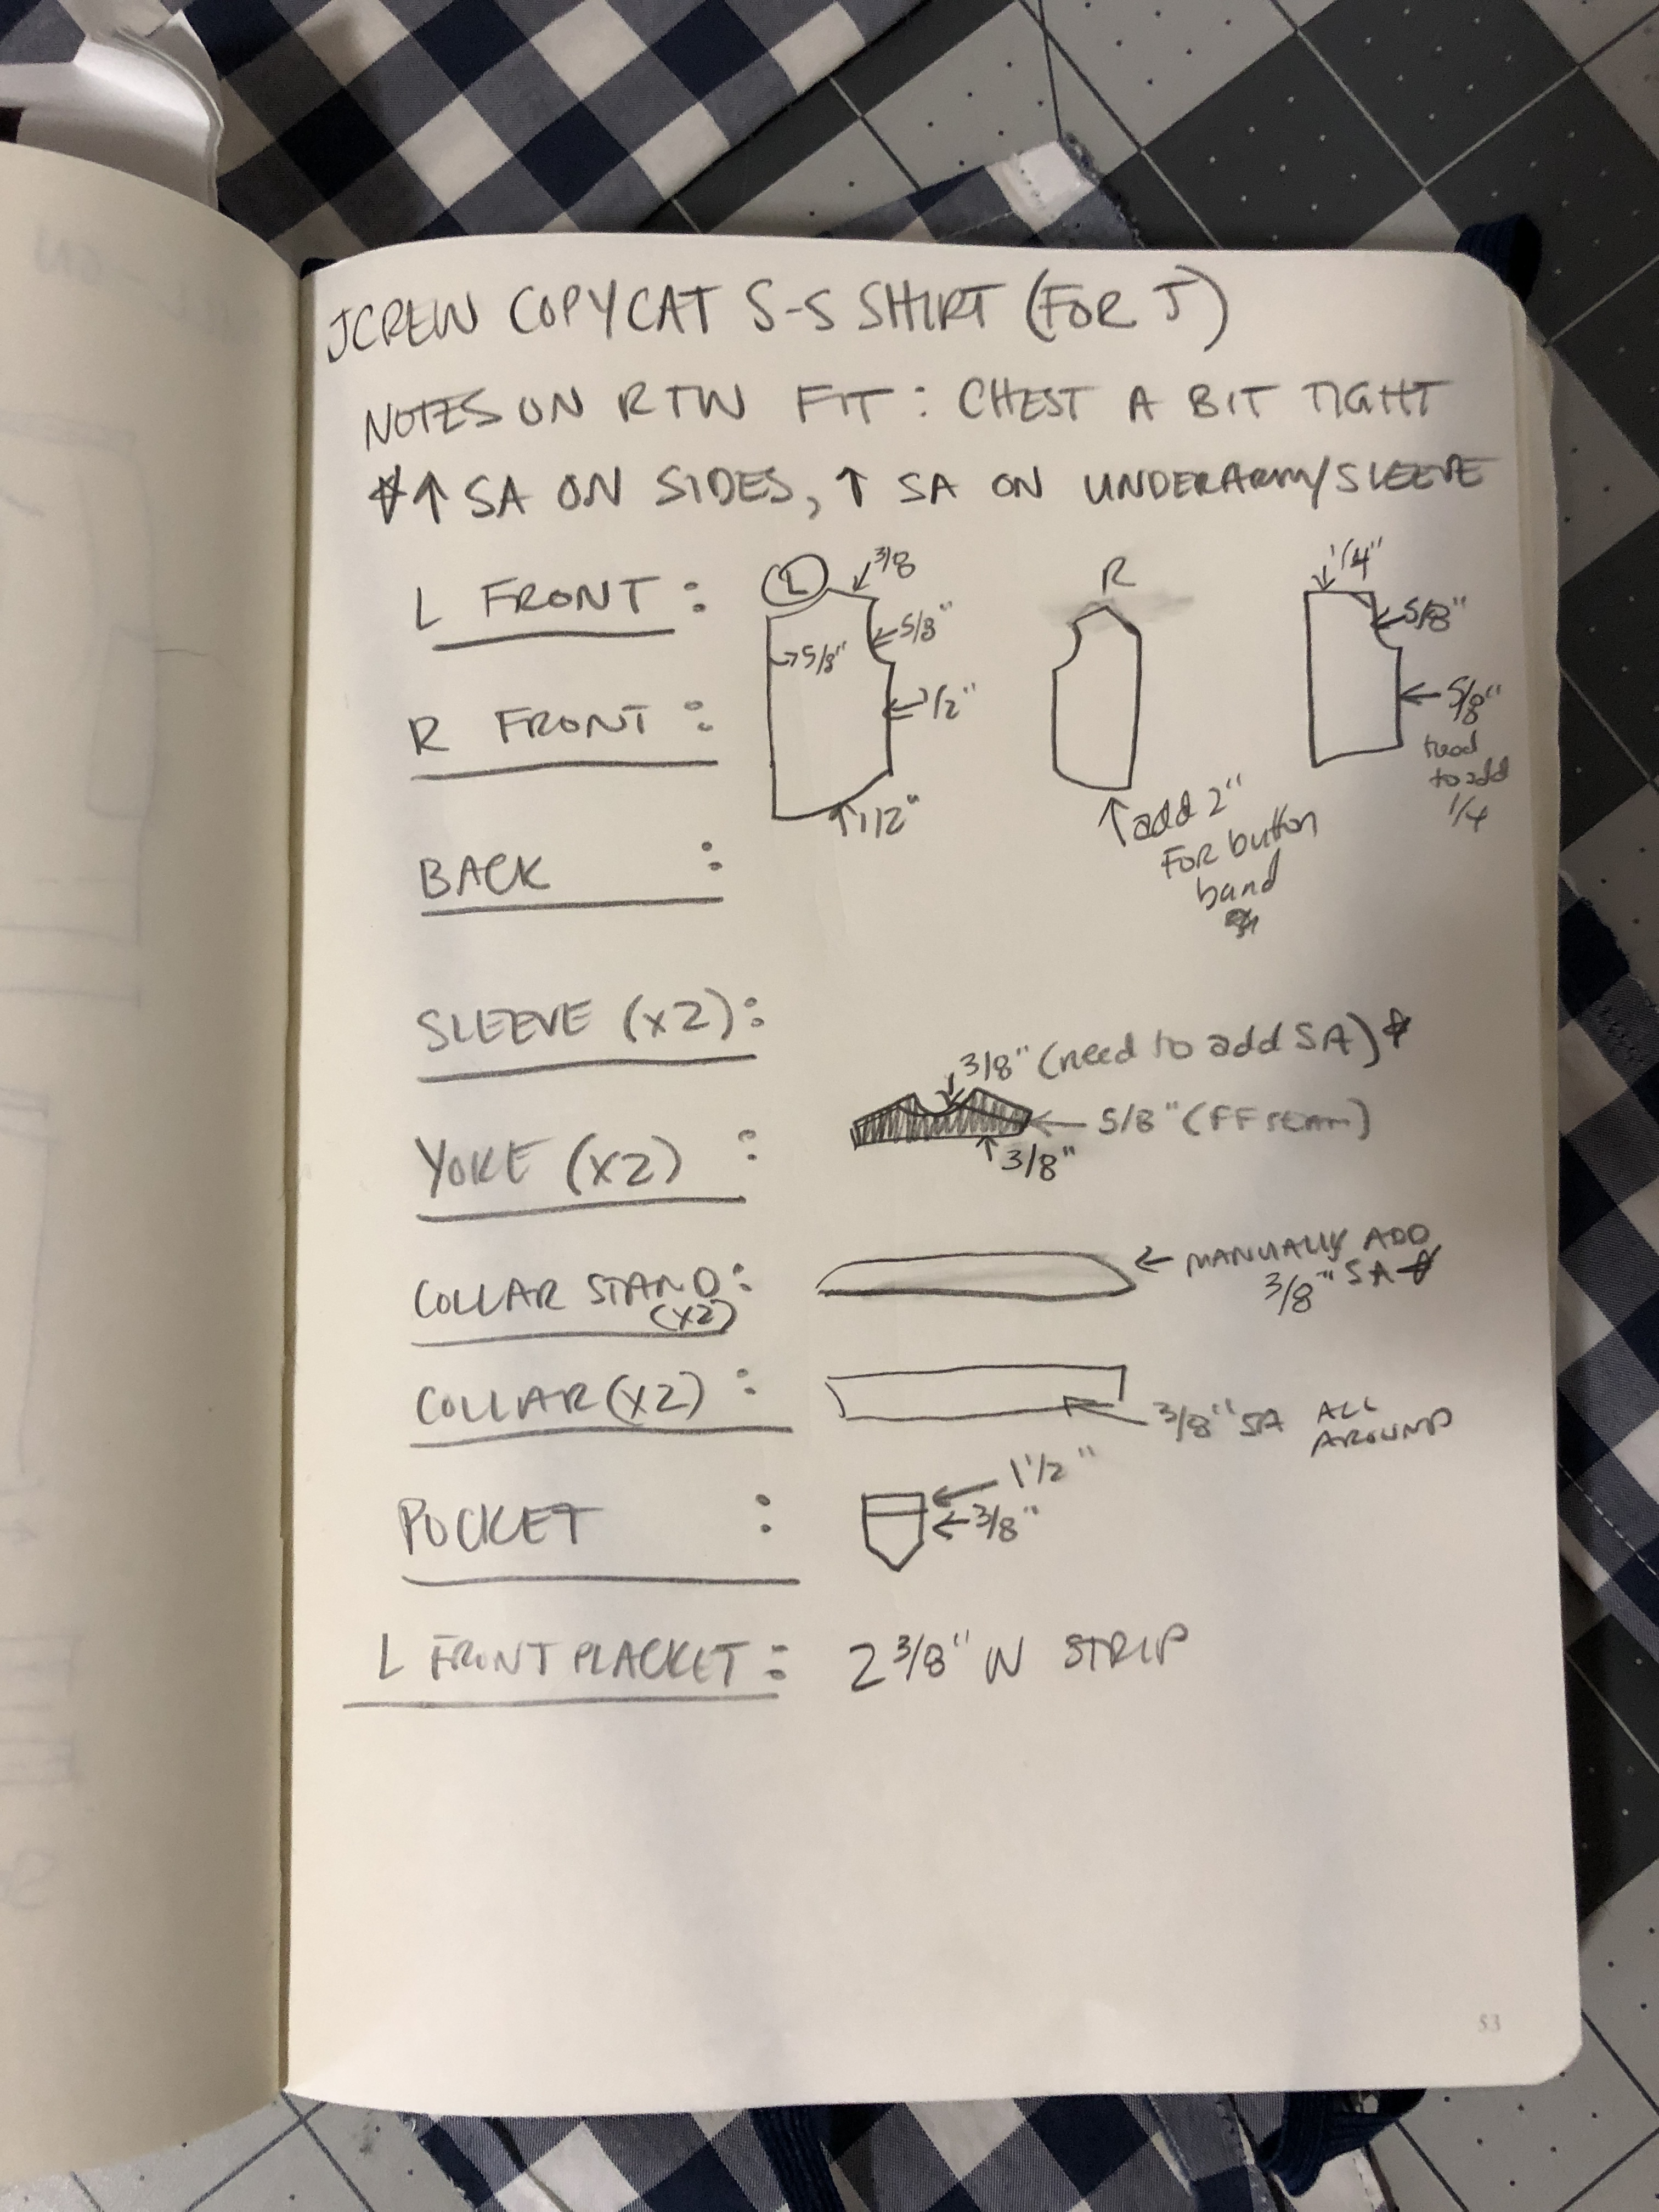 JCREW COPYCAT S-S SHIRT (FOR J)
NOTES ON RTW FIT: CHEST A BIT TIGHT
☆↑ SA ON SIDES, ↑ SA ON UNDERARM/SLEEVE
L FRONT:
L
3/8
5/8"
5/8"
1/2"
1/2"
R
add 2"
FOR button
band
1/4"
5/8"
5/8"
need
to add
1/4
R FRONT:
BACK :
SLEEVE (X2):
YOKE (X2) :
3/8" (need to add SA)☆
5/8" (FF seam)
3/8"
COLLAR STAND:
(X2)
MANUALLY ADD
3/8" SA ☆
COLLAR (X2) :
3/8" SA ALL
AROUND
POCKET :
1 1/2"
3/8"
L FRONT PLACKET: 2 3/8" W STRIP
53